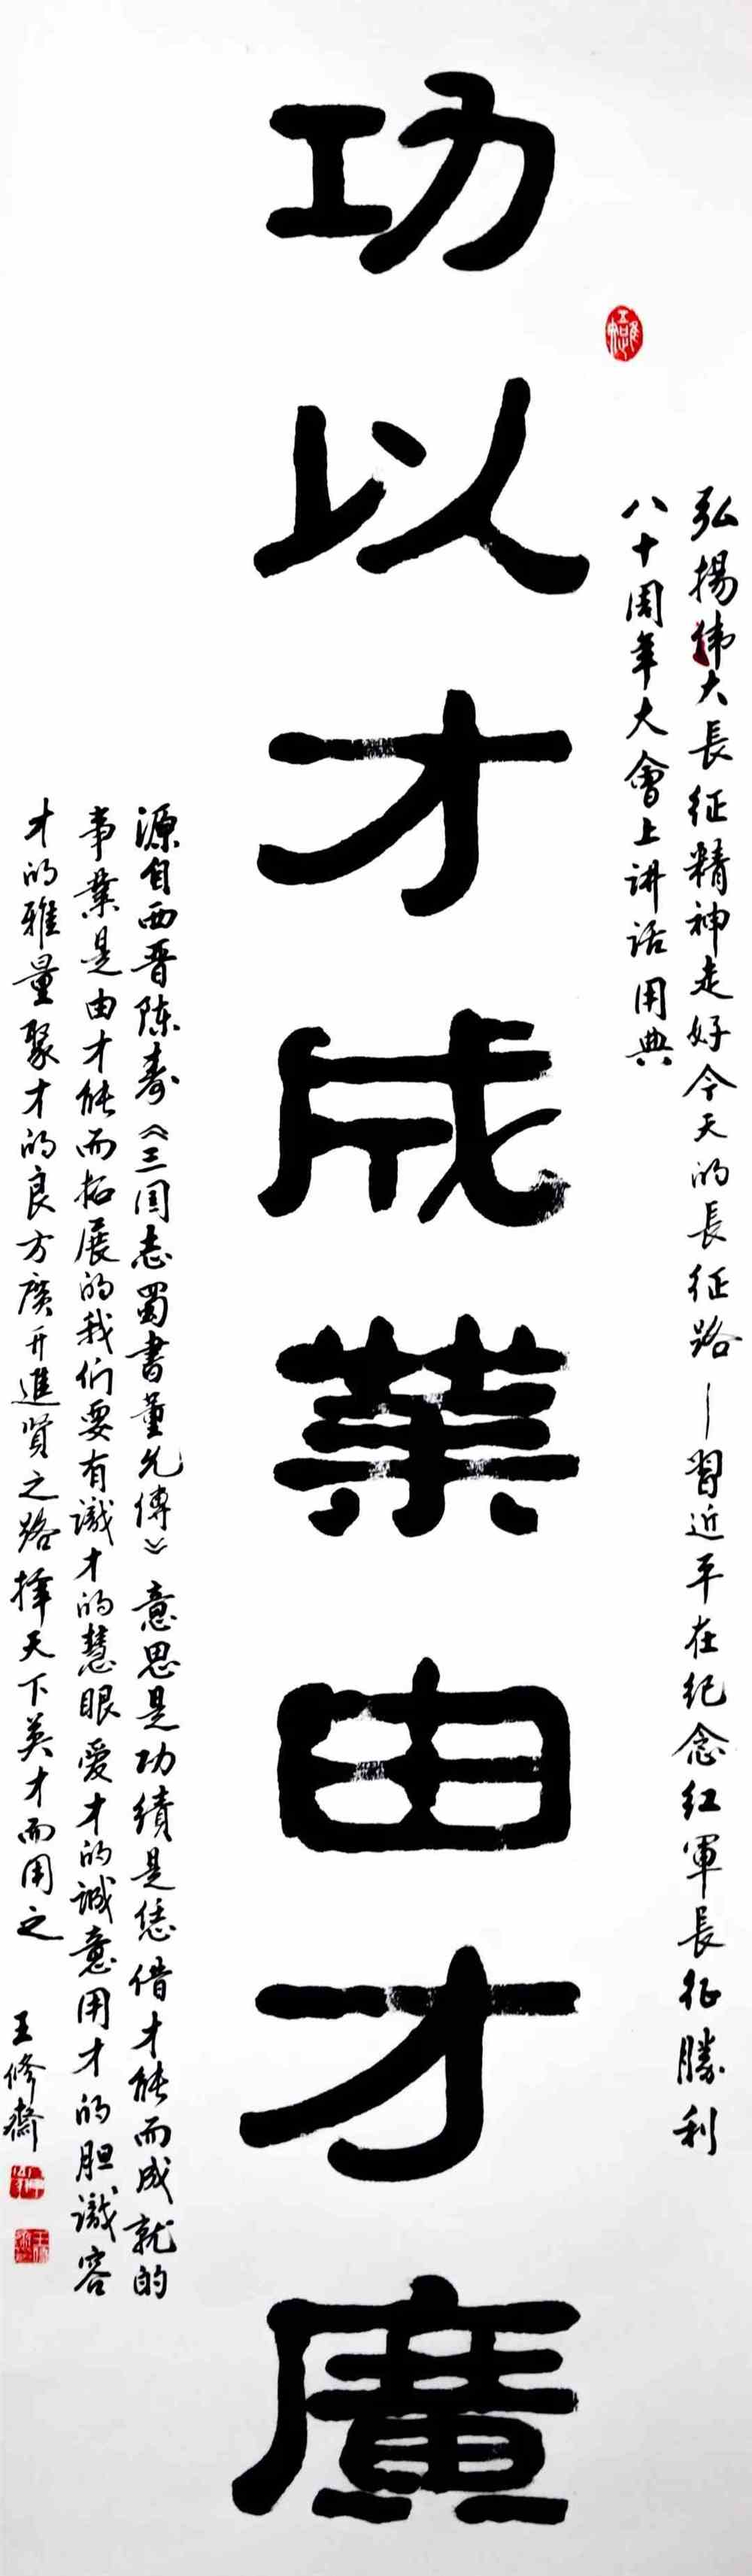 弘揚偉大長征精神走好今天的長征路—習近平在纪念红軍長征勝利
八十周年大會上讲话用典
功以才成業由才廣
源自西晋陈寿《三国志蜀書董允傳》意思是功績是凭借才能而成就的
事業是由才能而拓展的我们要有識才的慧眼爱才的誠意用才的胆識容
才的雅量聚才的良方廣开進賢之路择天下英才而用之
王修齋